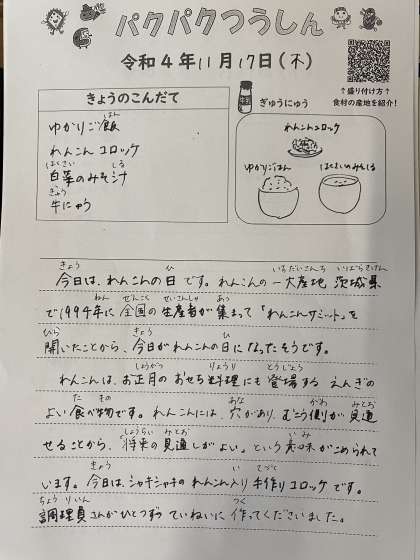 パクパクつうしん
令和4年11月17日(木)
↑盛り付け方↑
食材の産地を紹介!
きょうのこんだて
ゆかりご飯
れんこんコロッケ
白菜のみそ汁
牛にゅう
ぎゅうにゅう
れんこんコロッケ
ゆかりごはん
はくさいのみそしる
今日は、れんこんの日です。れんこんの一大産地 茨城県
で1994年に全国の生産者が集まって「れんこんサミット」を
開いたことから、今日がれんこんの日になったそうです。
れんこんは、お正月のおせち料理にも登場するえんぎの
よい食べ物です。れんこんには、穴があり、むこう側が見通
せることから、「将来の見通しがよい」という意味がこめられて
います。今日は、シャキシャキのれんこん入り手作りコロッケです。
調理員さんがひとつずつていねいに作ってくださいました。